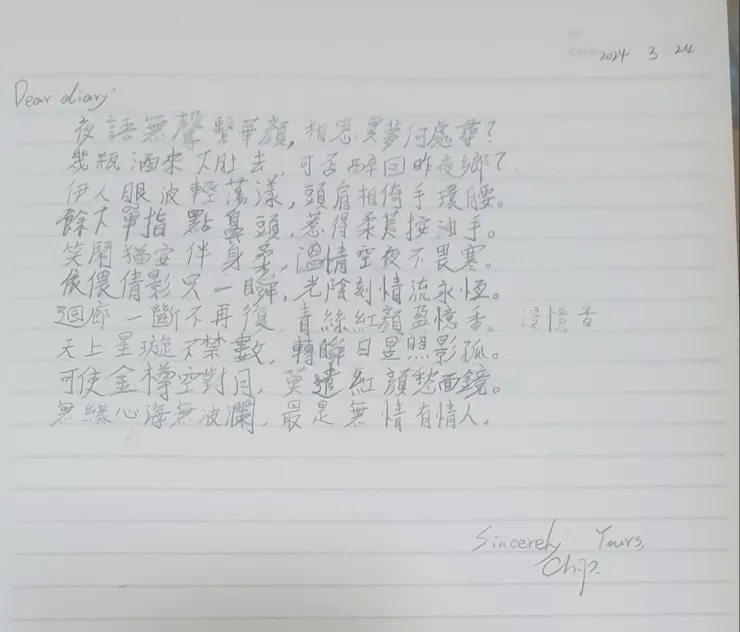 2024 3 24
Dear diary:
夜語無聲繫華顏,相思異夢何處尋?
幾瓶酒來下肚去,可否醉回昨夜鄉?
伊人眼波輕蕩漾,頭肩相倚手環腰。
餘下單指點鼻頭,惹得柔荑按油手。
笑鬧猶安伴身柔,溫情空夜不畏寒。
依偎倩影只一瞬,光陰刻情流永恆。
迴廊一斷不再復,青絲紅顏盈憶香。 浸憶香
天上星璇不禁數,轉瞬日昱照影孤。
可使金樽空對月,莫遣紅顏愁面鏡。
無緣心海無波瀾,最是無情有情人。
Sincerely Yours,